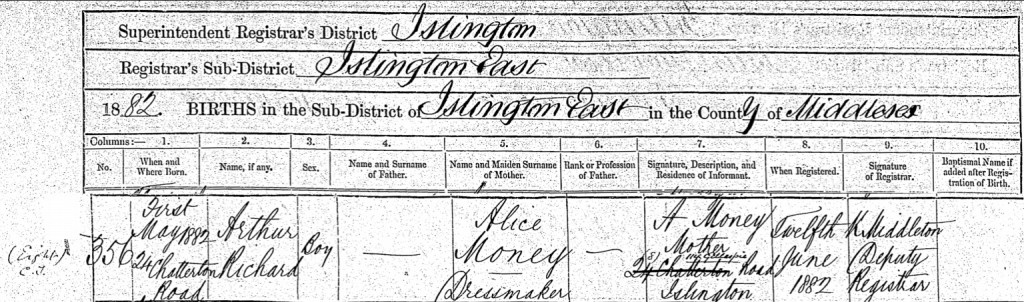 Superintendent Registrar's District Islington
Registrar's Sub-District Islington East
1882. BIRTHS in the Sub-District of Islington East in the County of Middlesex
Columns:— 1. 2. 3. 4. 5. 6. 7. 8. 9. 10.
No. When and Where Born. Name, if any. Sex. Name and Surname of Father. Name and Maiden Surname of Mother. Rank or Profession of Father. Signature, Description, and Residence of Informant. When Registered. Signature of Registrar. Baptismal Name if added after Registration of Birth.
(Eighth)
C.J.
356
First
May 1882
24
Chatterton
Road
Arthur
Richard
Boy
—
Alice
Money
Dressmaker
—
A Money
Mother
24 Chatterton Road
Islington
Twelfth
June
1882
K. Middleton
Deputy
Registrar